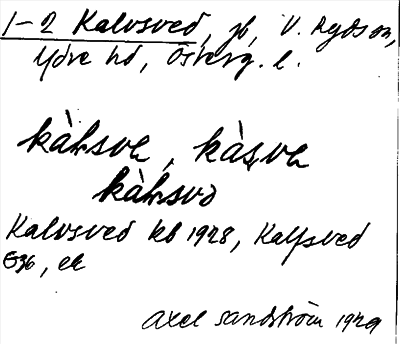 1-2 Kalvsved, jb, V. Ryds sn,
Ydre hd, Österg. l.
kàlsve, kàsve
kàlsvə
Kalvsved kb 1928, Kalfsved
G36, ek
Axel Sandström 1929